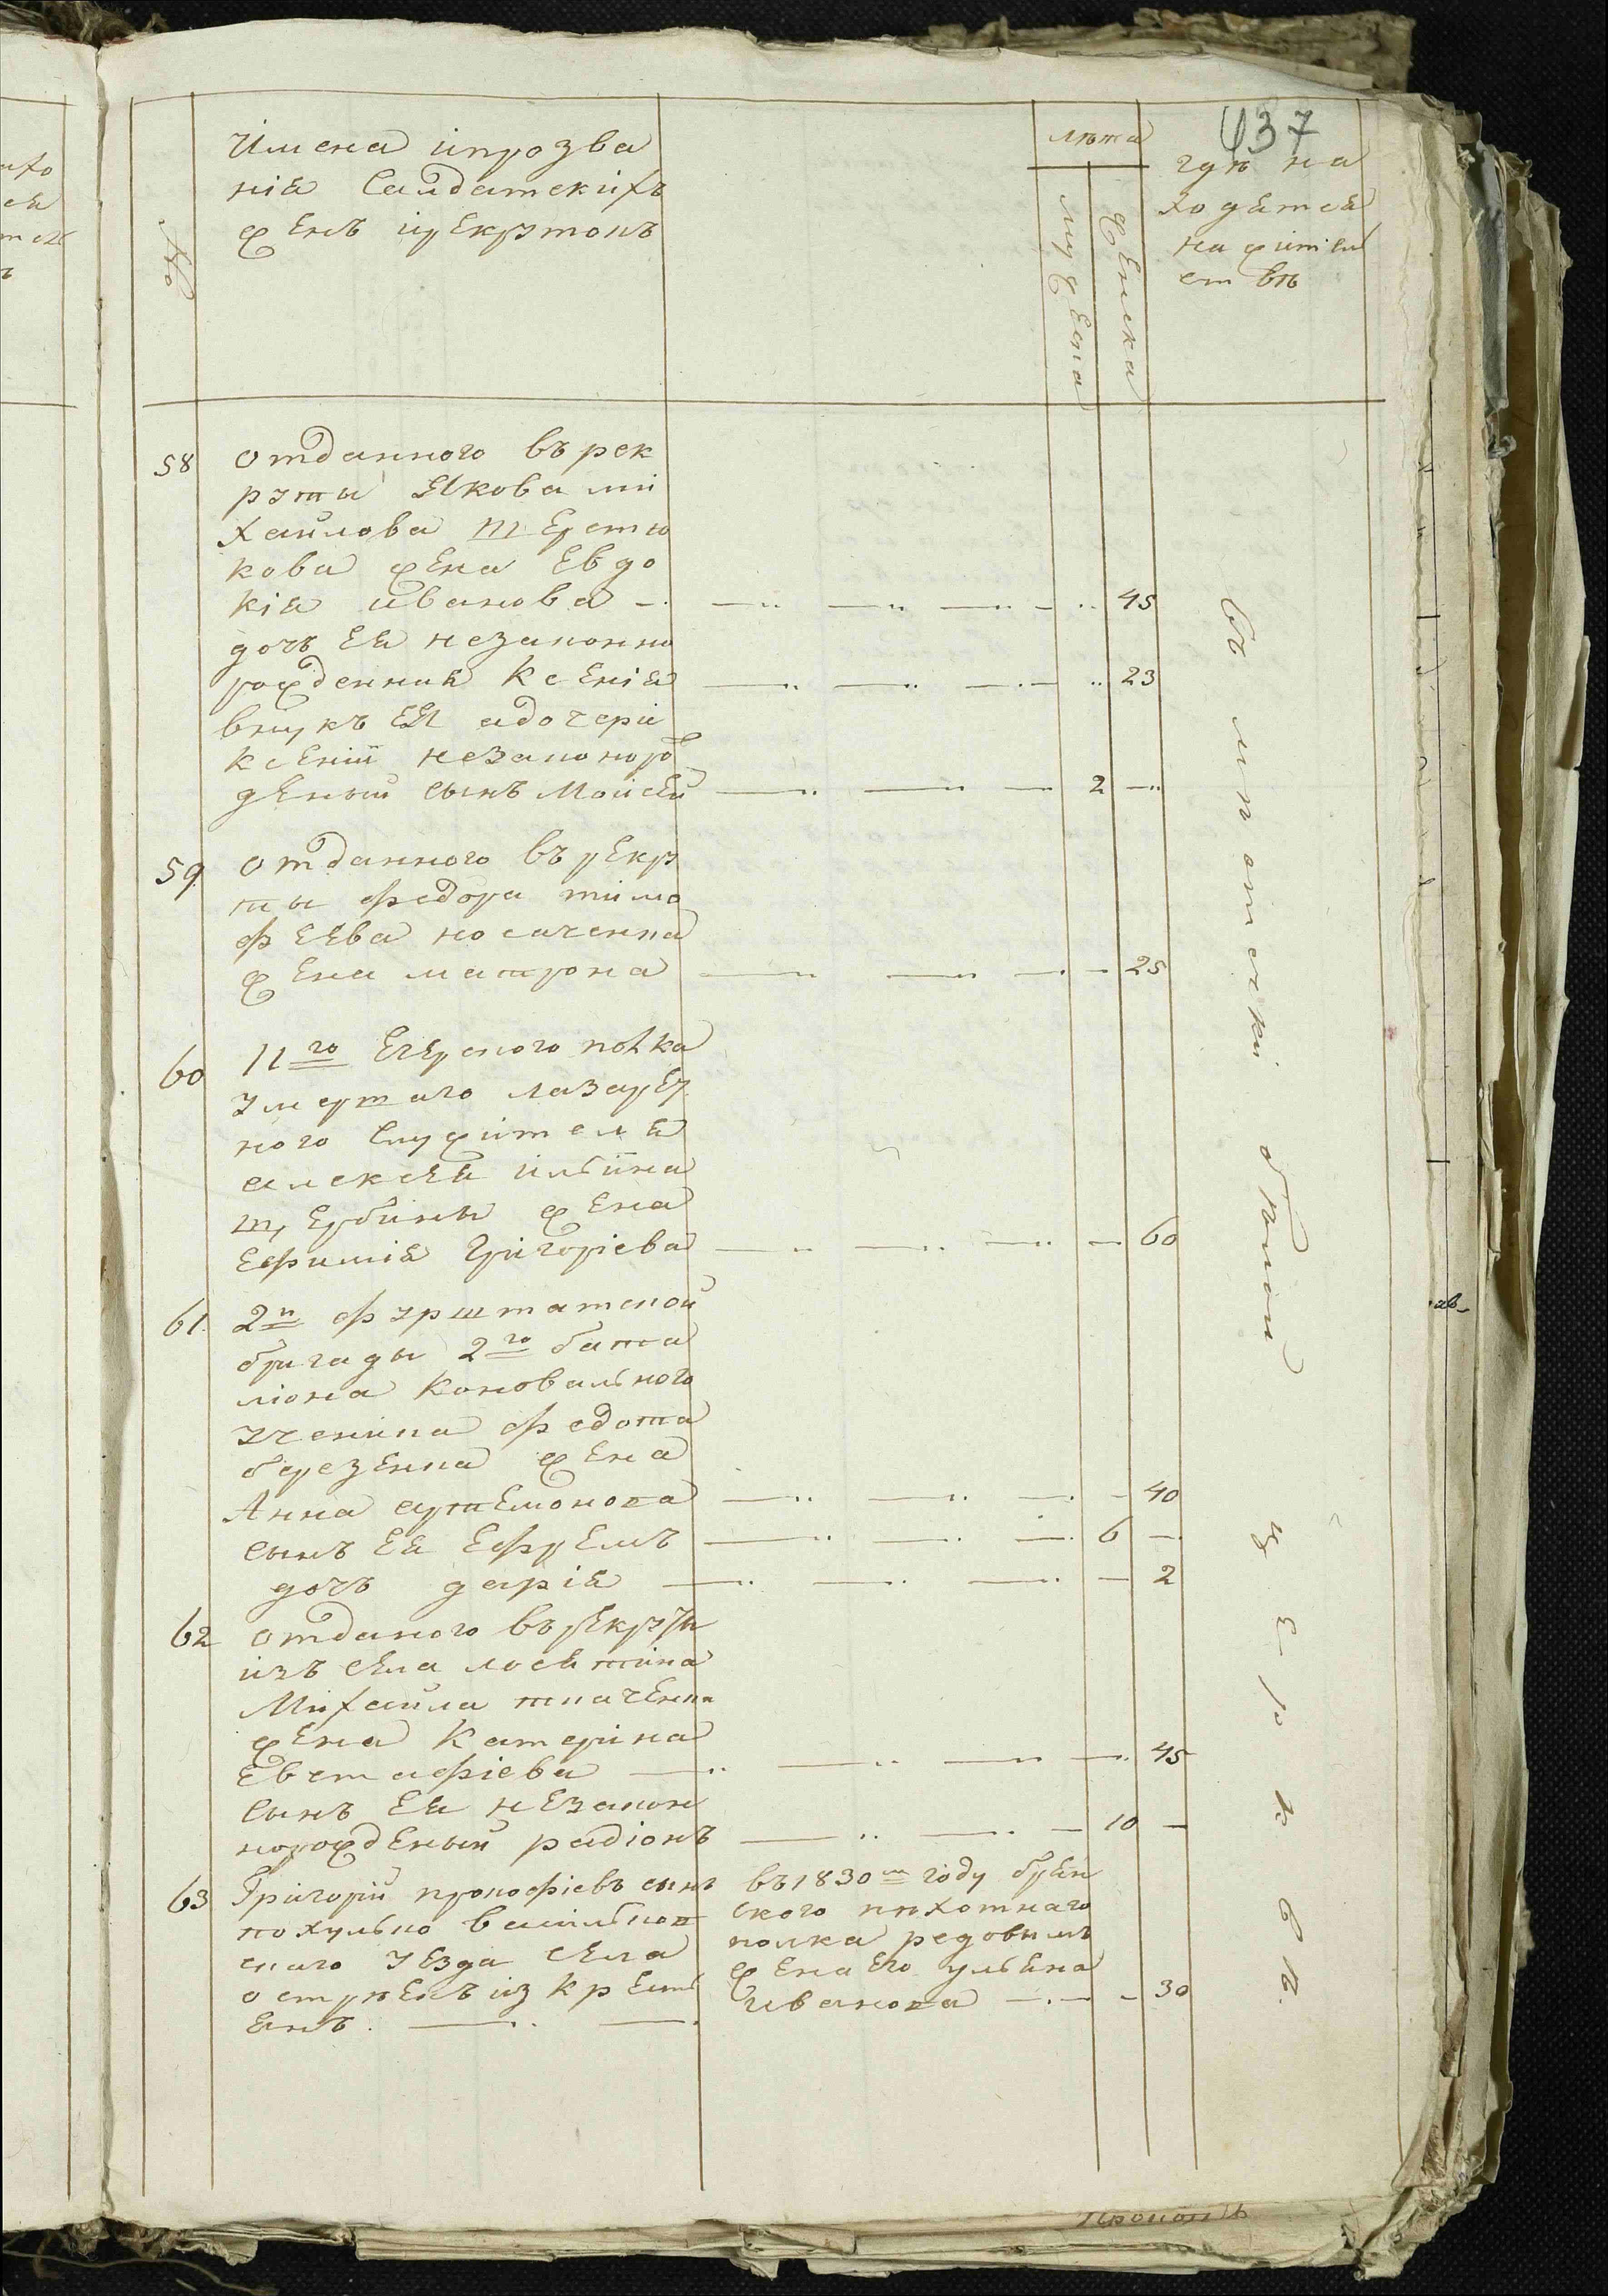 437
Имена ипрозва
нія Салдатскихъ
женъ ирекрутокъ
лѣта
гдѣ на
ходятся
на жител
ствѣ
№
мужеска
женска
58 отданного въ рек
руты Якова ми
хаилова шерстю
кова жена Евдо
кія иванова 45
дочъ Ея незаконно
рожденная Ксенія 23
внукъ Ея адочери
ксеніи незаконорож
деный сынъ Моисей 2
59 отданного въ рекру
ты федора тимо
феева носаченка
жена матрона 25
60 11го Егерского полка
умершаго лазарет
ного Служителя
алексея ильина
щербины жена
Ефимія Григоріева 60
61 2й фурштатской
бригады 2го бата
ліона Коновального
ученика федота
березенка жена
Анна артемонова 40
сынъ Ея Ефремъ 6
дочъ дарія 2
62 отданого въ рекруты
изъ села
Михаила ткаченка
жена Катерина
Евстафіева 45
сынъ Ея незакон
норожденый радіонъ 10
63 Григорій прокофіевъ сынъ
похулько васильков
скаго уезда села
острꙗ изкресть
янъ
въ 1830м году брян
ского пѣхотнаго
полка редовымъ
жена Его ульяна
иванова 30